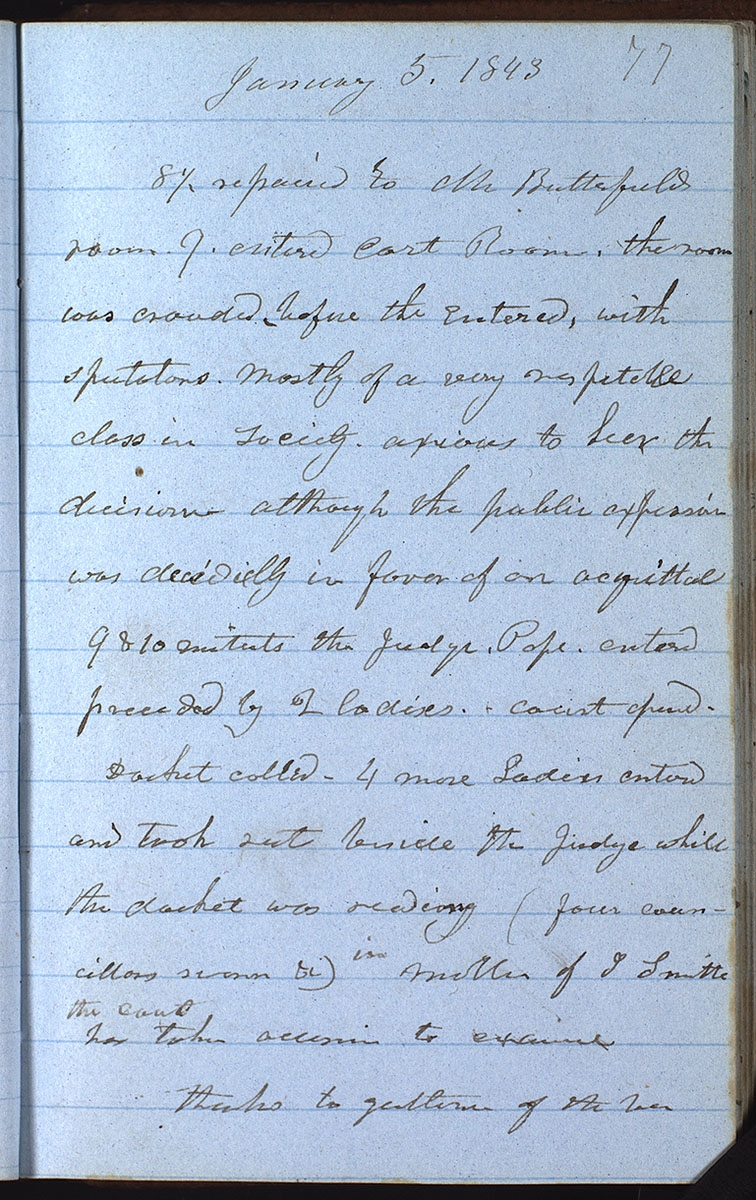 January 5. 1843 77
8½ repaired to Mr Butterfields
room. 9. entered Cort Room. the room
was crowded before the entered, with
spectators. mostly of a very respctable
class in Society. anxious to heer the
decision although the public expression
was decidedly in favor of an acquittal
9 & 10 minuts the Judge. Pope. entered
preceeded by 2 ladies. - court opend-
Docket called- 4 more Ladies entered
and took seat beside the Judge while
the docket was reading (four coun-
cillors sworn &c) in matter of J Smith
the court
has taken occasion to examine
thanks to gentlemen of the bar